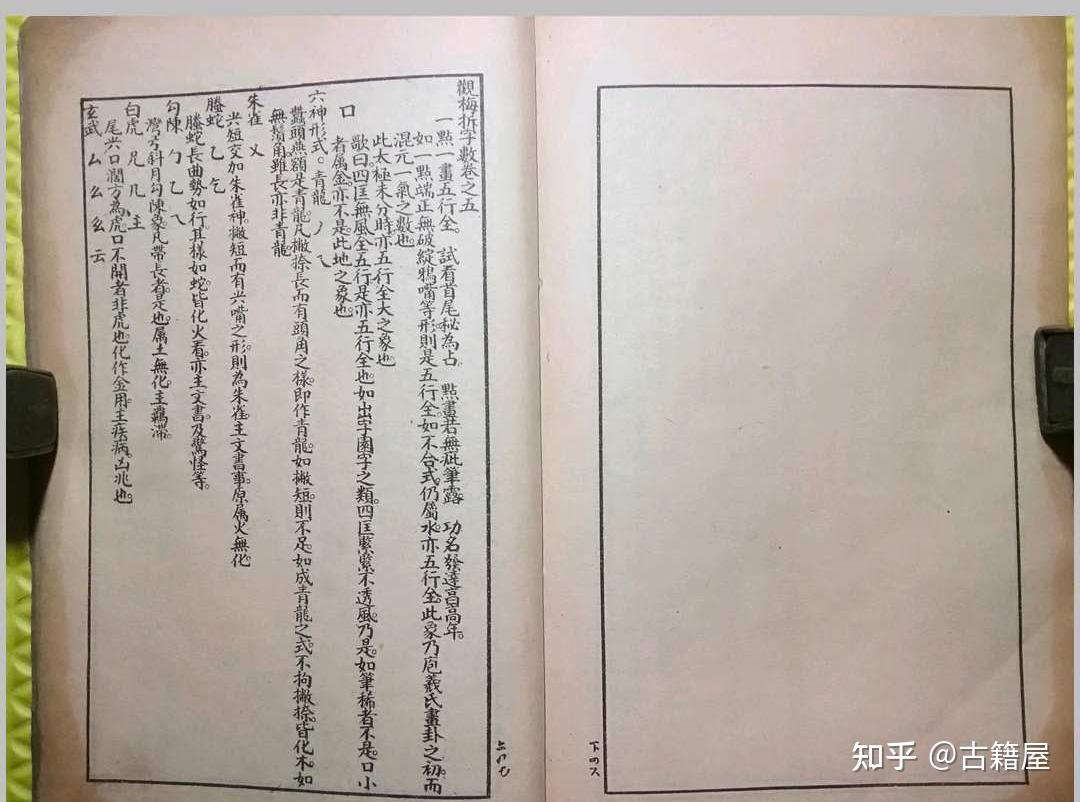 觀梅拆字數卷之五
一點一畫五行全。 試看首尾秘為占。 點畫若無疵筆露 功名發達高年。
如一點端正無破綻鴉嘴等形則是五行全。如不合式仍屬水。亦五行全。此象乃庖羲氏畫卦之初。而
混元一氣之數也。
此太極未分時亦五行全大之象也
口 歌曰。四匡無風全五行是亦五行全也如出字園字之類。四匡緊緊不透風。乃是。如筆稀者不是。口小
者属金亦不是。此地之象也。
六神形式。青龍 丿 乁
蠶頭燕額是青龍凡撇捺長而有頭角之樣。即作青龍。如撇短則不足。如成青龍之式不拘撇捺皆化木。如
無鬚角雖長亦非青龍
朱雀 乂
尖短交加朱雀神。撇短而有尖嘴之形。則為朱雀主文書事。原属火無化。
螣蛇 乙 乞
螣蛇長曲勢如行。其樣如蛇。皆化火看。亦主文書。及驚怪等。
勾陳 勹 乙 乁
灣弓斜月勾陳象。凡帶長者。是也。属土無化。主羈滯。
白虎 兕 几 主
尾尖口濶方為虎。口不開者非虎也。化作金用。主疾病。凶兆也。
玄武 厶 么 幺 云
上四七
下四八
知乎 @古籍屋